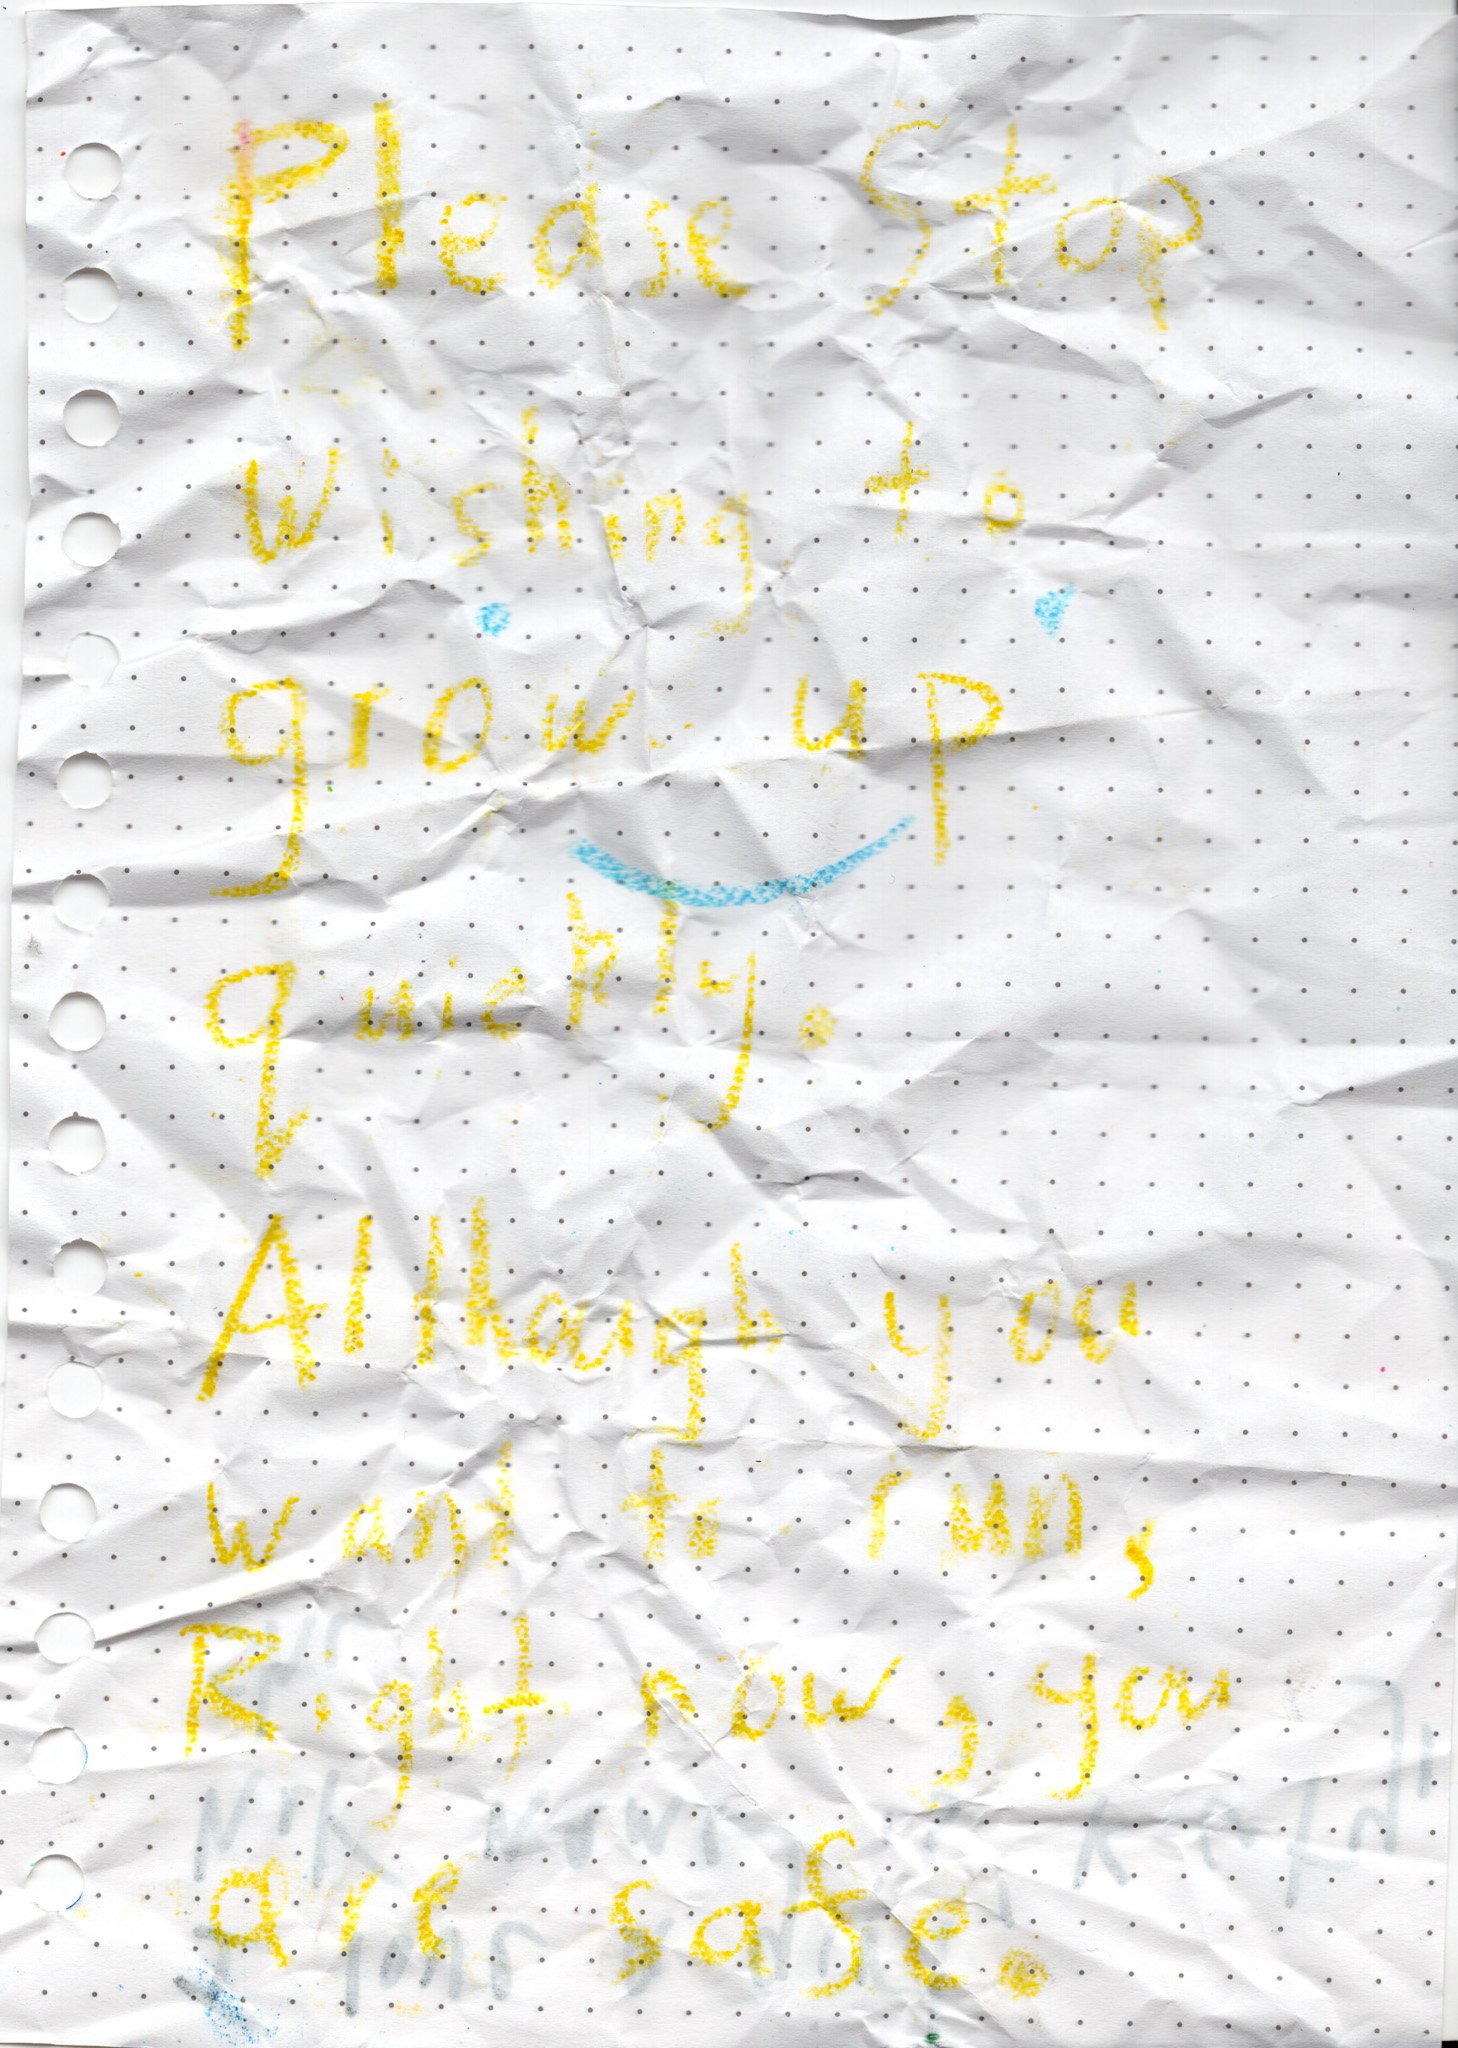 Please Stop
wishing to
grow up
quickly.
Although you
want to run,
Right now, you
are safe.